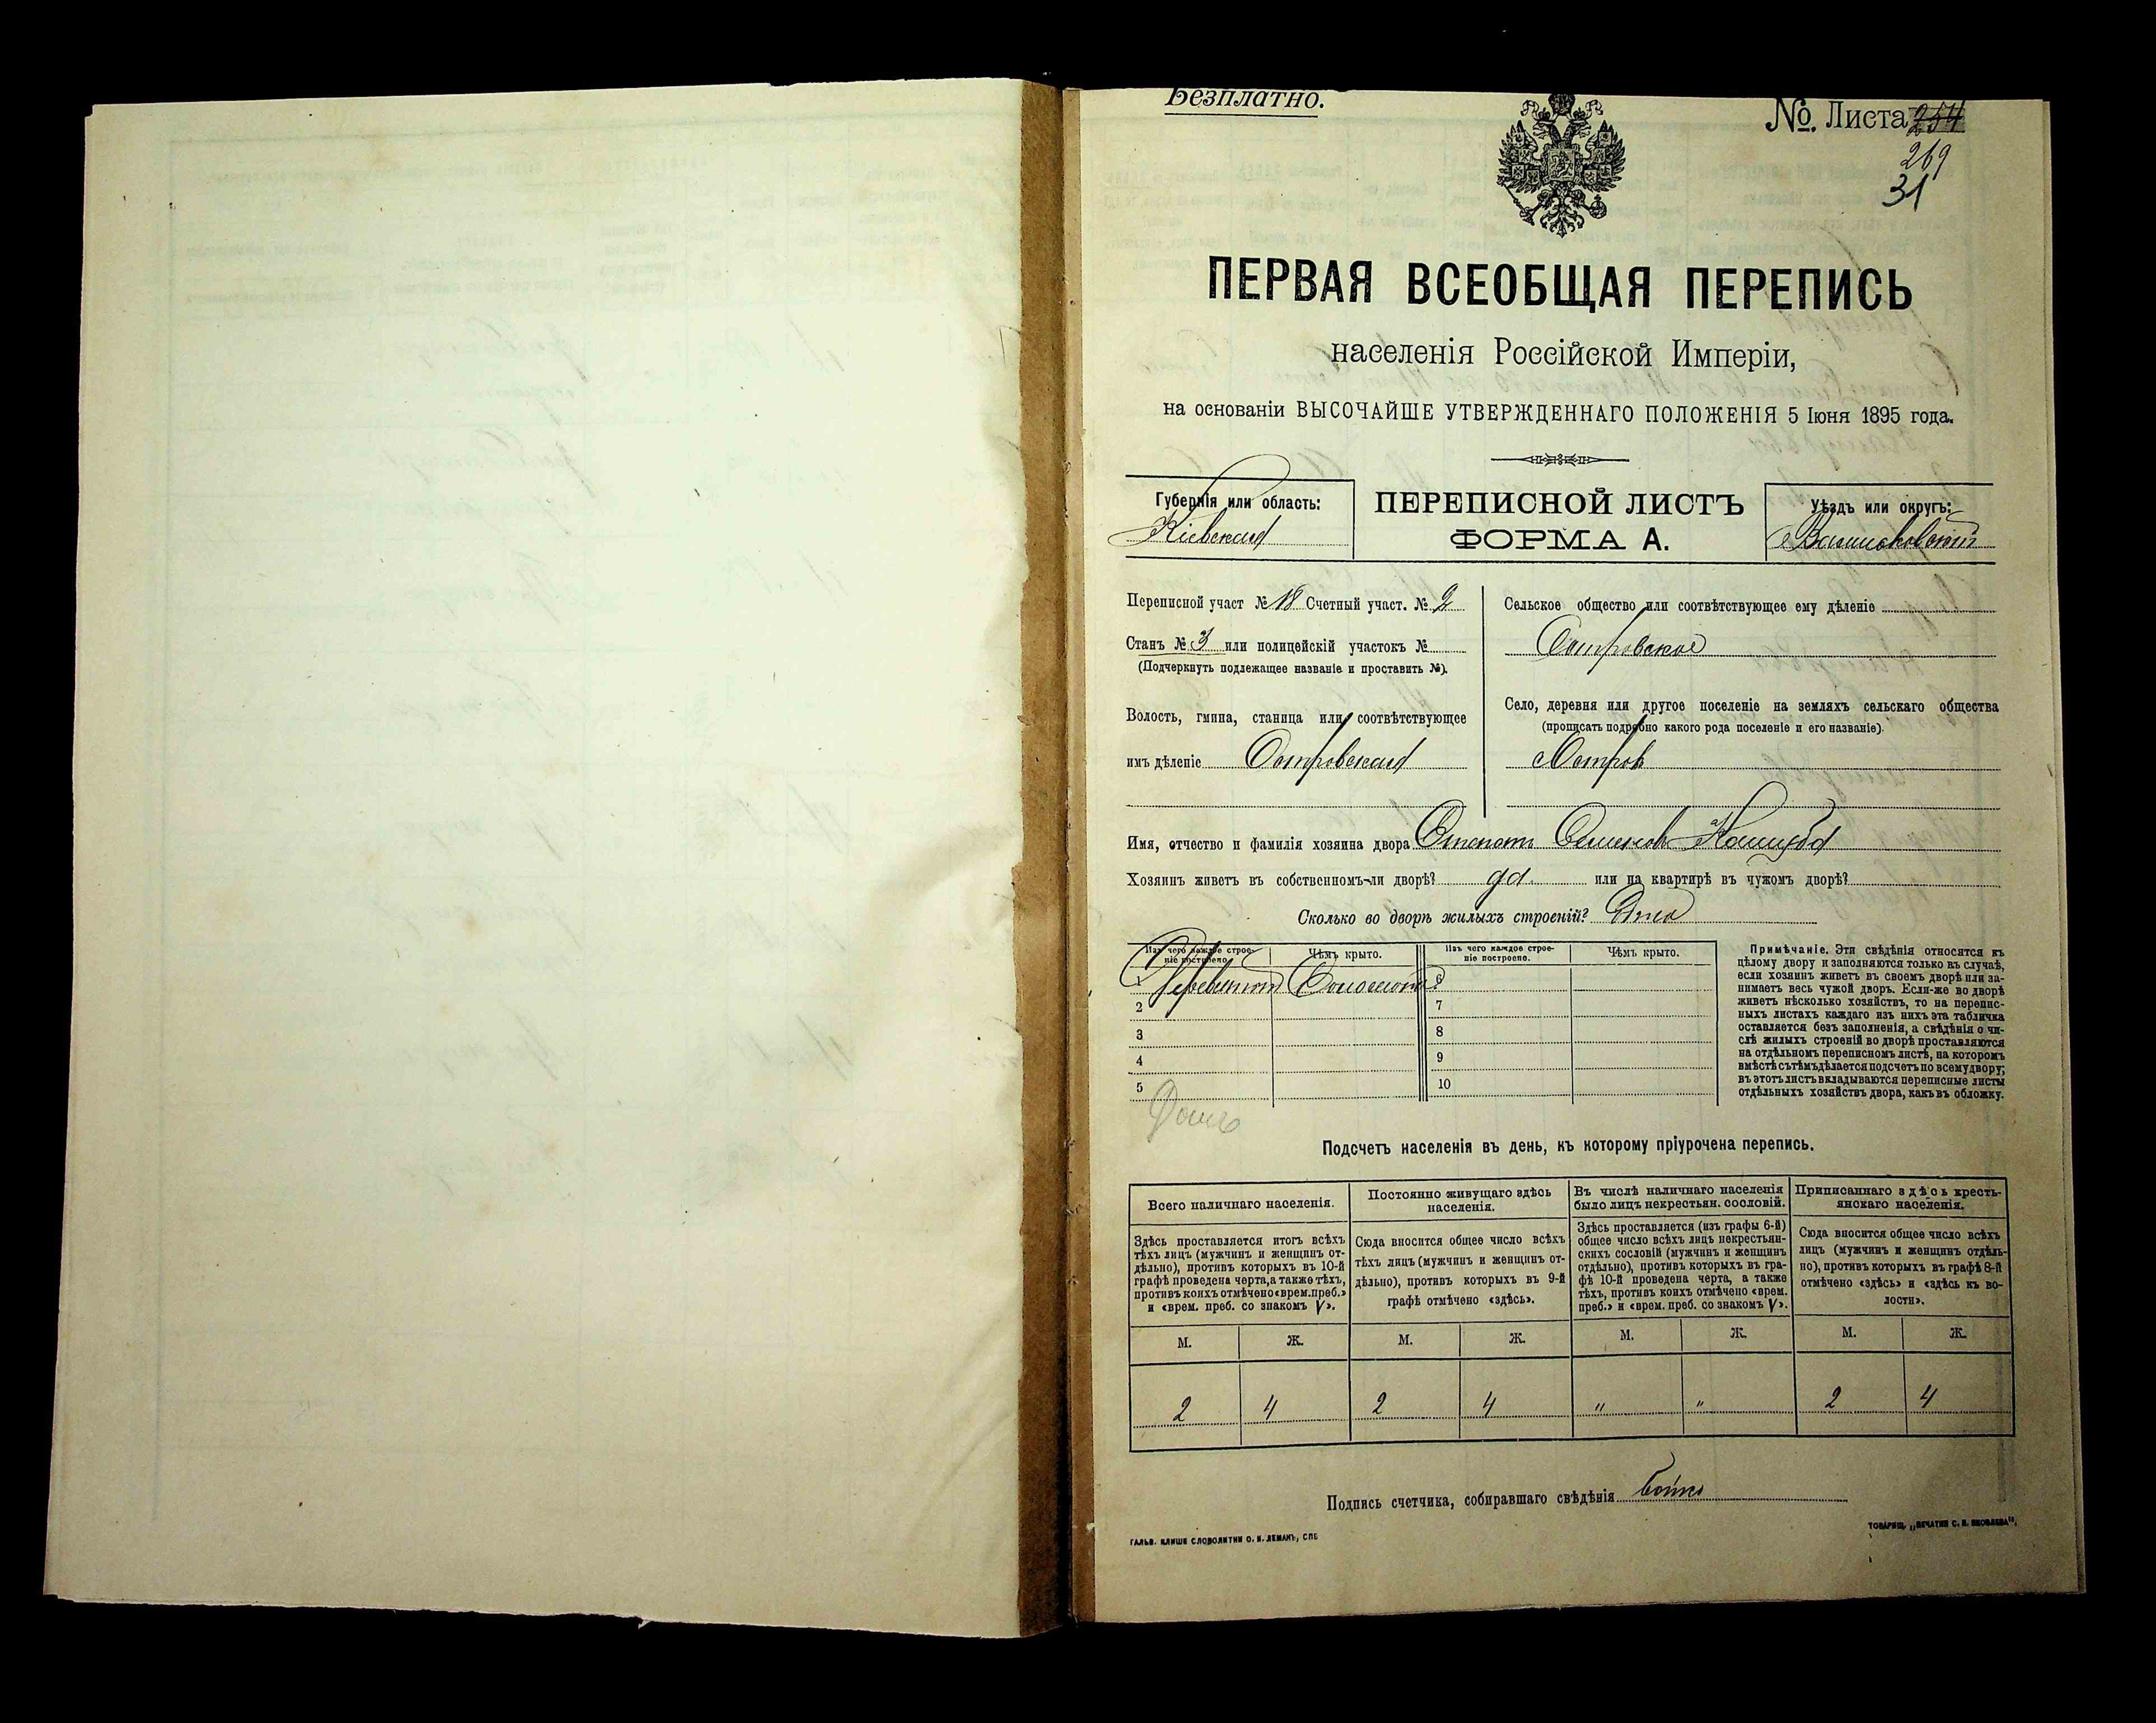 Безплатно.
№. Листа 254
269
31
ПЕРВАЯ ВСЕОБЩАЯ ПЕРЕПИСЬ
населенія Россійской Имперіи,
на основаніи ВЫСОЧАЙШЕ УТВЕРЖДЕННАГО ПОЛОЖЕНІЯ 5 Іюня 1895 года.
Губернія или область:
Кіевская
ПЕРЕПИСНОЙ ЛИСТЪ
ФОРМА А.
Уѣздъ или округъ:
Васильковскій
Переписной участ № 18 Счетный участ. № 2
Станъ № 3 или полицейскій участокъ №
(Подчеркнуть подлежащее названіе и проставить №).
Волость, гмина, станица или соотвѣтствующее
имъ дѣленіе Островская
Сельское общество или соотвѣтствующее ему дѣленіе
Островское
Село, деревня или другое поселеніе на земляхъ сельскаго общества
(прописать подробно какого рода поселеніе и его названіе).
Островъ
Имя, отчество и фамилія хозяина двора Степанъ Семеновъ
Хозяинъ живетъ въ собственномъ-ли дворѣ? да или на квартирѣ въ чужомъ дворѣ?
Сколько во дворѣ жилыхъ строеній? Одно
Изъ чего каждое строе-
ніе построено.
Чѣмъ крыто.
Изъ чего каждое строе-
ніе построено.
Чѣмъ крыто.
1 Деревянной Соломой 6
2 7
3 8
4 9
5 10
Примѣчаніе. Эти свѣдѣнія относятся къ
цѣлому двору и заполняются только въ случаѣ,
если хозяинъ живетъ въ своемъ дворѣ или за-
нимаетъ весь чужой дворъ. Если-же во дворѣ
живетъ нѣсколько хозяйствъ, то на перепис-
ныхъ листахъ каждаго изъ нихъ эта табличка
оставляется безъ заполненія, а свѣдѣнія о чи-
слѣ жилыхъ строеній во дворѣ проставляются
на отдѣльномъ переписномъ листѣ, на которомъ
вмѣстѣ съ тѣмъ дѣлается подсчетъ по всему двору;
въ этотъ листъ вкладываются переписные листы
отдѣльныхъ хозяйствъ двора, какъ въ обложку.
Подсчетъ населенія въ день, къ которому пріурочена перепись.
Всего наличнаго населенія.
Здѣсь проставляется итогъ всѣхъ
тѣхъ лицъ (мужчинъ и женщинъ от-
дѣльно), противъ которыхъ въ 10-й
графѣ проведена черта, а также тѣхъ,
противъ коихъ отмѣчено «врем. преб.»
и «врем. преб. со знакомъ V».
Постоянно живущаго здѣсь
населенія.
Сюда вносится общее число всѣхъ
тѣхъ лицъ (мужчинъ и женщинъ от-
дѣльно), противъ которыхъ въ 9-й
графѣ отмѣчено «здѣсь».
Въ числѣ наличнаго населенія
было лицъ некрестьян. сословій.
Здѣсь проставляется (изъ графы 6-й)
общее число всѣхъ лицъ некрестьян-
скихъ сословій (мужчинъ и женщинъ
отдѣльно), противъ которыхъ въ гра-
фѣ 10-й проведена черта, а также
тѣхъ, противъ коихъ отмѣчено «врем.
преб.» и «врем. преб. со знакомъ V».
Приписаннаго здѣсь кресть-
янскаго населенія.
Сюда вносится общее число всѣхъ
лицъ (мужчинъ и женщинъ отдѣль-
но), противъ которыхъ въ графѣ 8-й
отмѣчено «здѣсь» и «здѣсь къ во-
лости».
М. Ж. М. Ж. М. Ж. М. Ж.
2 4 2 4 " " 2 4
Подпись счетчика, собиравшаго свѣдѣнія Бойко
ГАЛЬВ. КЛИШЕ СЛОВОЛИТНИ О. И. ЛЕМАНЪ, СПБ
ТОВАРИЩ. „ПЕЧАТНЯ С. П. ЯКОВЛЕВА".